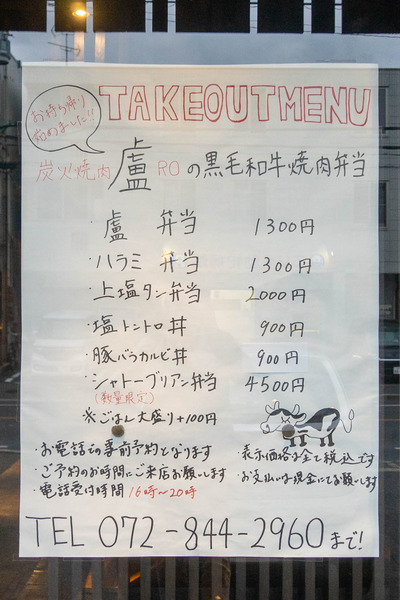 お持ち帰り
始めました!!
TAKEOUTMENU
炭火焼肉 盧 ROの黒毛和牛焼肉弁当
・盧 弁当 1300円
・ハラミ 弁当 1300円
・上塩タン弁当 2000円
・塩トントロ丼 900円
・豚バラカルビ丼 900円
・シャトーブリアン弁当 4500円
(数量限定)
※ごはん大盛り+100円
・お電話での事前予約となります
・ご予約のお時間にご来店お願いします
・電話受付時間 16時〜20時
・表示価格は全て税込です
・お支払いは現金にてお願いします
TEL 072-844-2960まで!